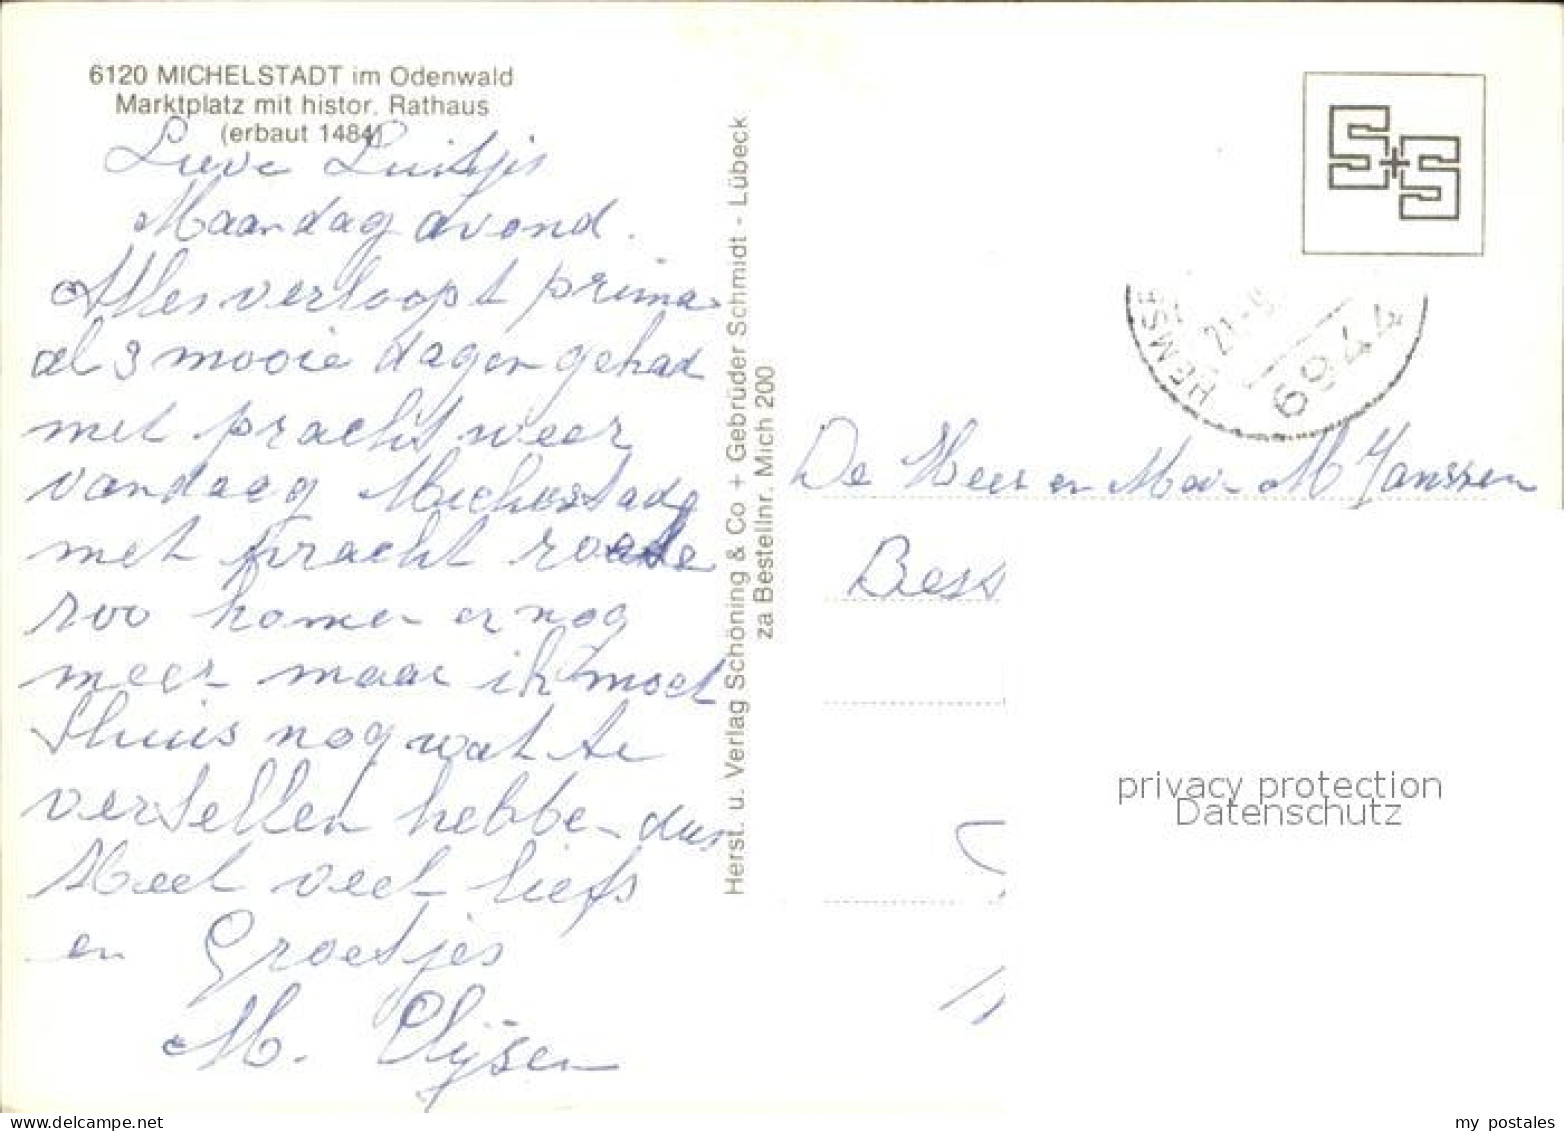 6120 MICHELSTADT im Odenwald
Marktplatz mit histor. Rathaus
(erbaut 1484)
Lieve Luitjes
Maandag avond.
Alles verloopt prima
al 3 mooie dagen gehad
met pracht weer
vandaag Michelstadt
met pracht
zoo komen er nog
meer maar ik moet
thuis nog wat te
vertellen hebben dus
Heel veel liefs
en Groetjes
M.
Herst. u. Verlag Schöning & Co + Gebrüder Schmidt - Lübeck
za Bestellnr. Mich 200
S+S
HEMSB
21.-9
6944
De Heer en Mev. M Janssen
privacy protection
Datenschutz
my postales